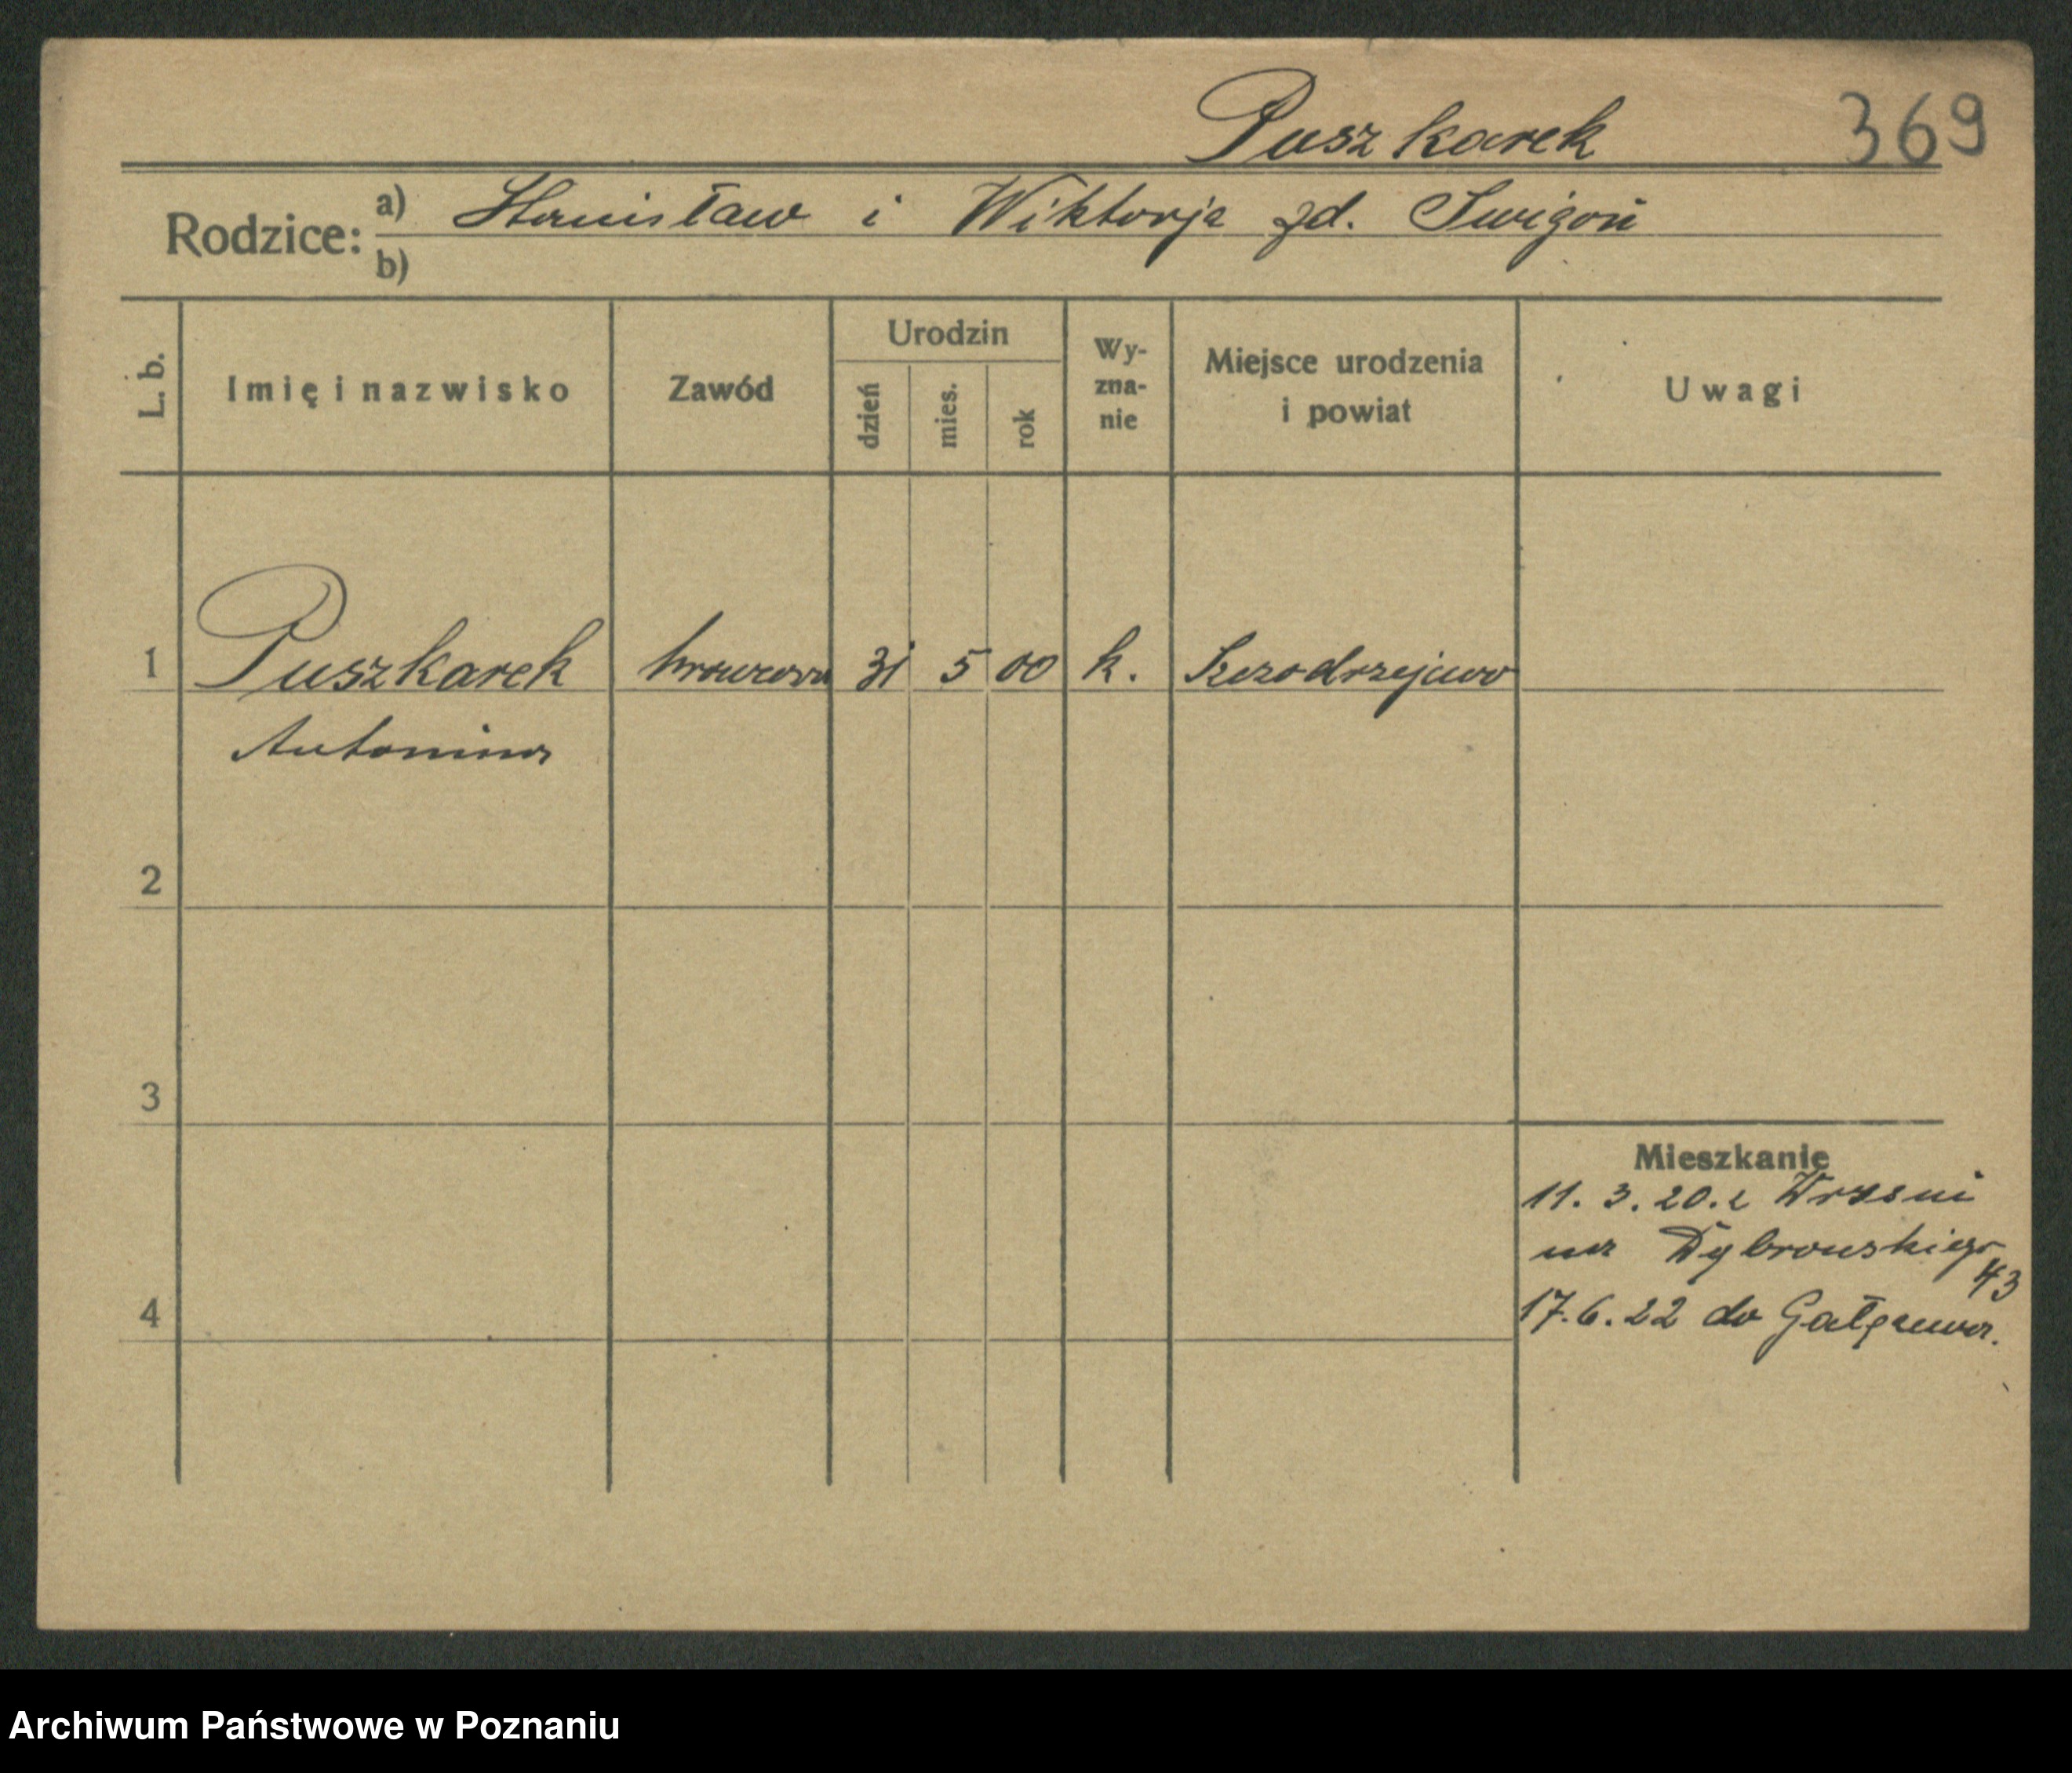 Puszkarek 369
Rodzice: a) Stanisław i Wiktorja zd. Świgoń
b)
L. b. Imię i nazwisko Zawód Urodzin dzień mies. rok Wy-zna-nie Miejsce urodzenia i powiat Uwagi
1 Puszkarek 31 5 00 k. Szczodrzejewo
Antonina
2
3
Mieszkanie
11. 3. 20. z Wrześni
na Dąbrowskiego
43
4
17. 6. 22 do Gałęzewa.
Archiwum Państwowe w Poznaniu